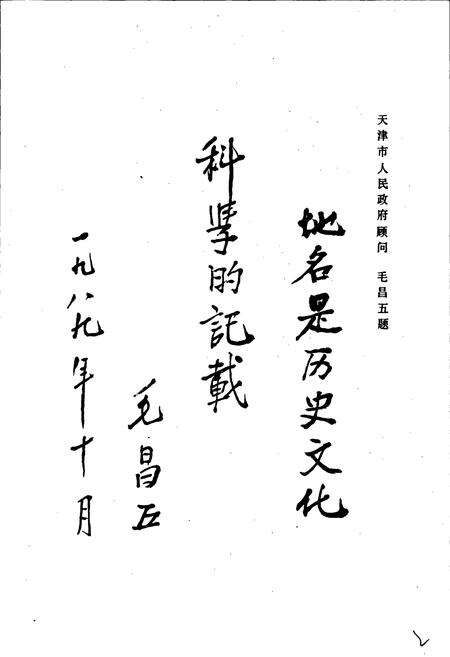 天津市人民政府顾问 毛昌五题
地名是历史文化
科学的記載
毛昌五
一九八九年十月